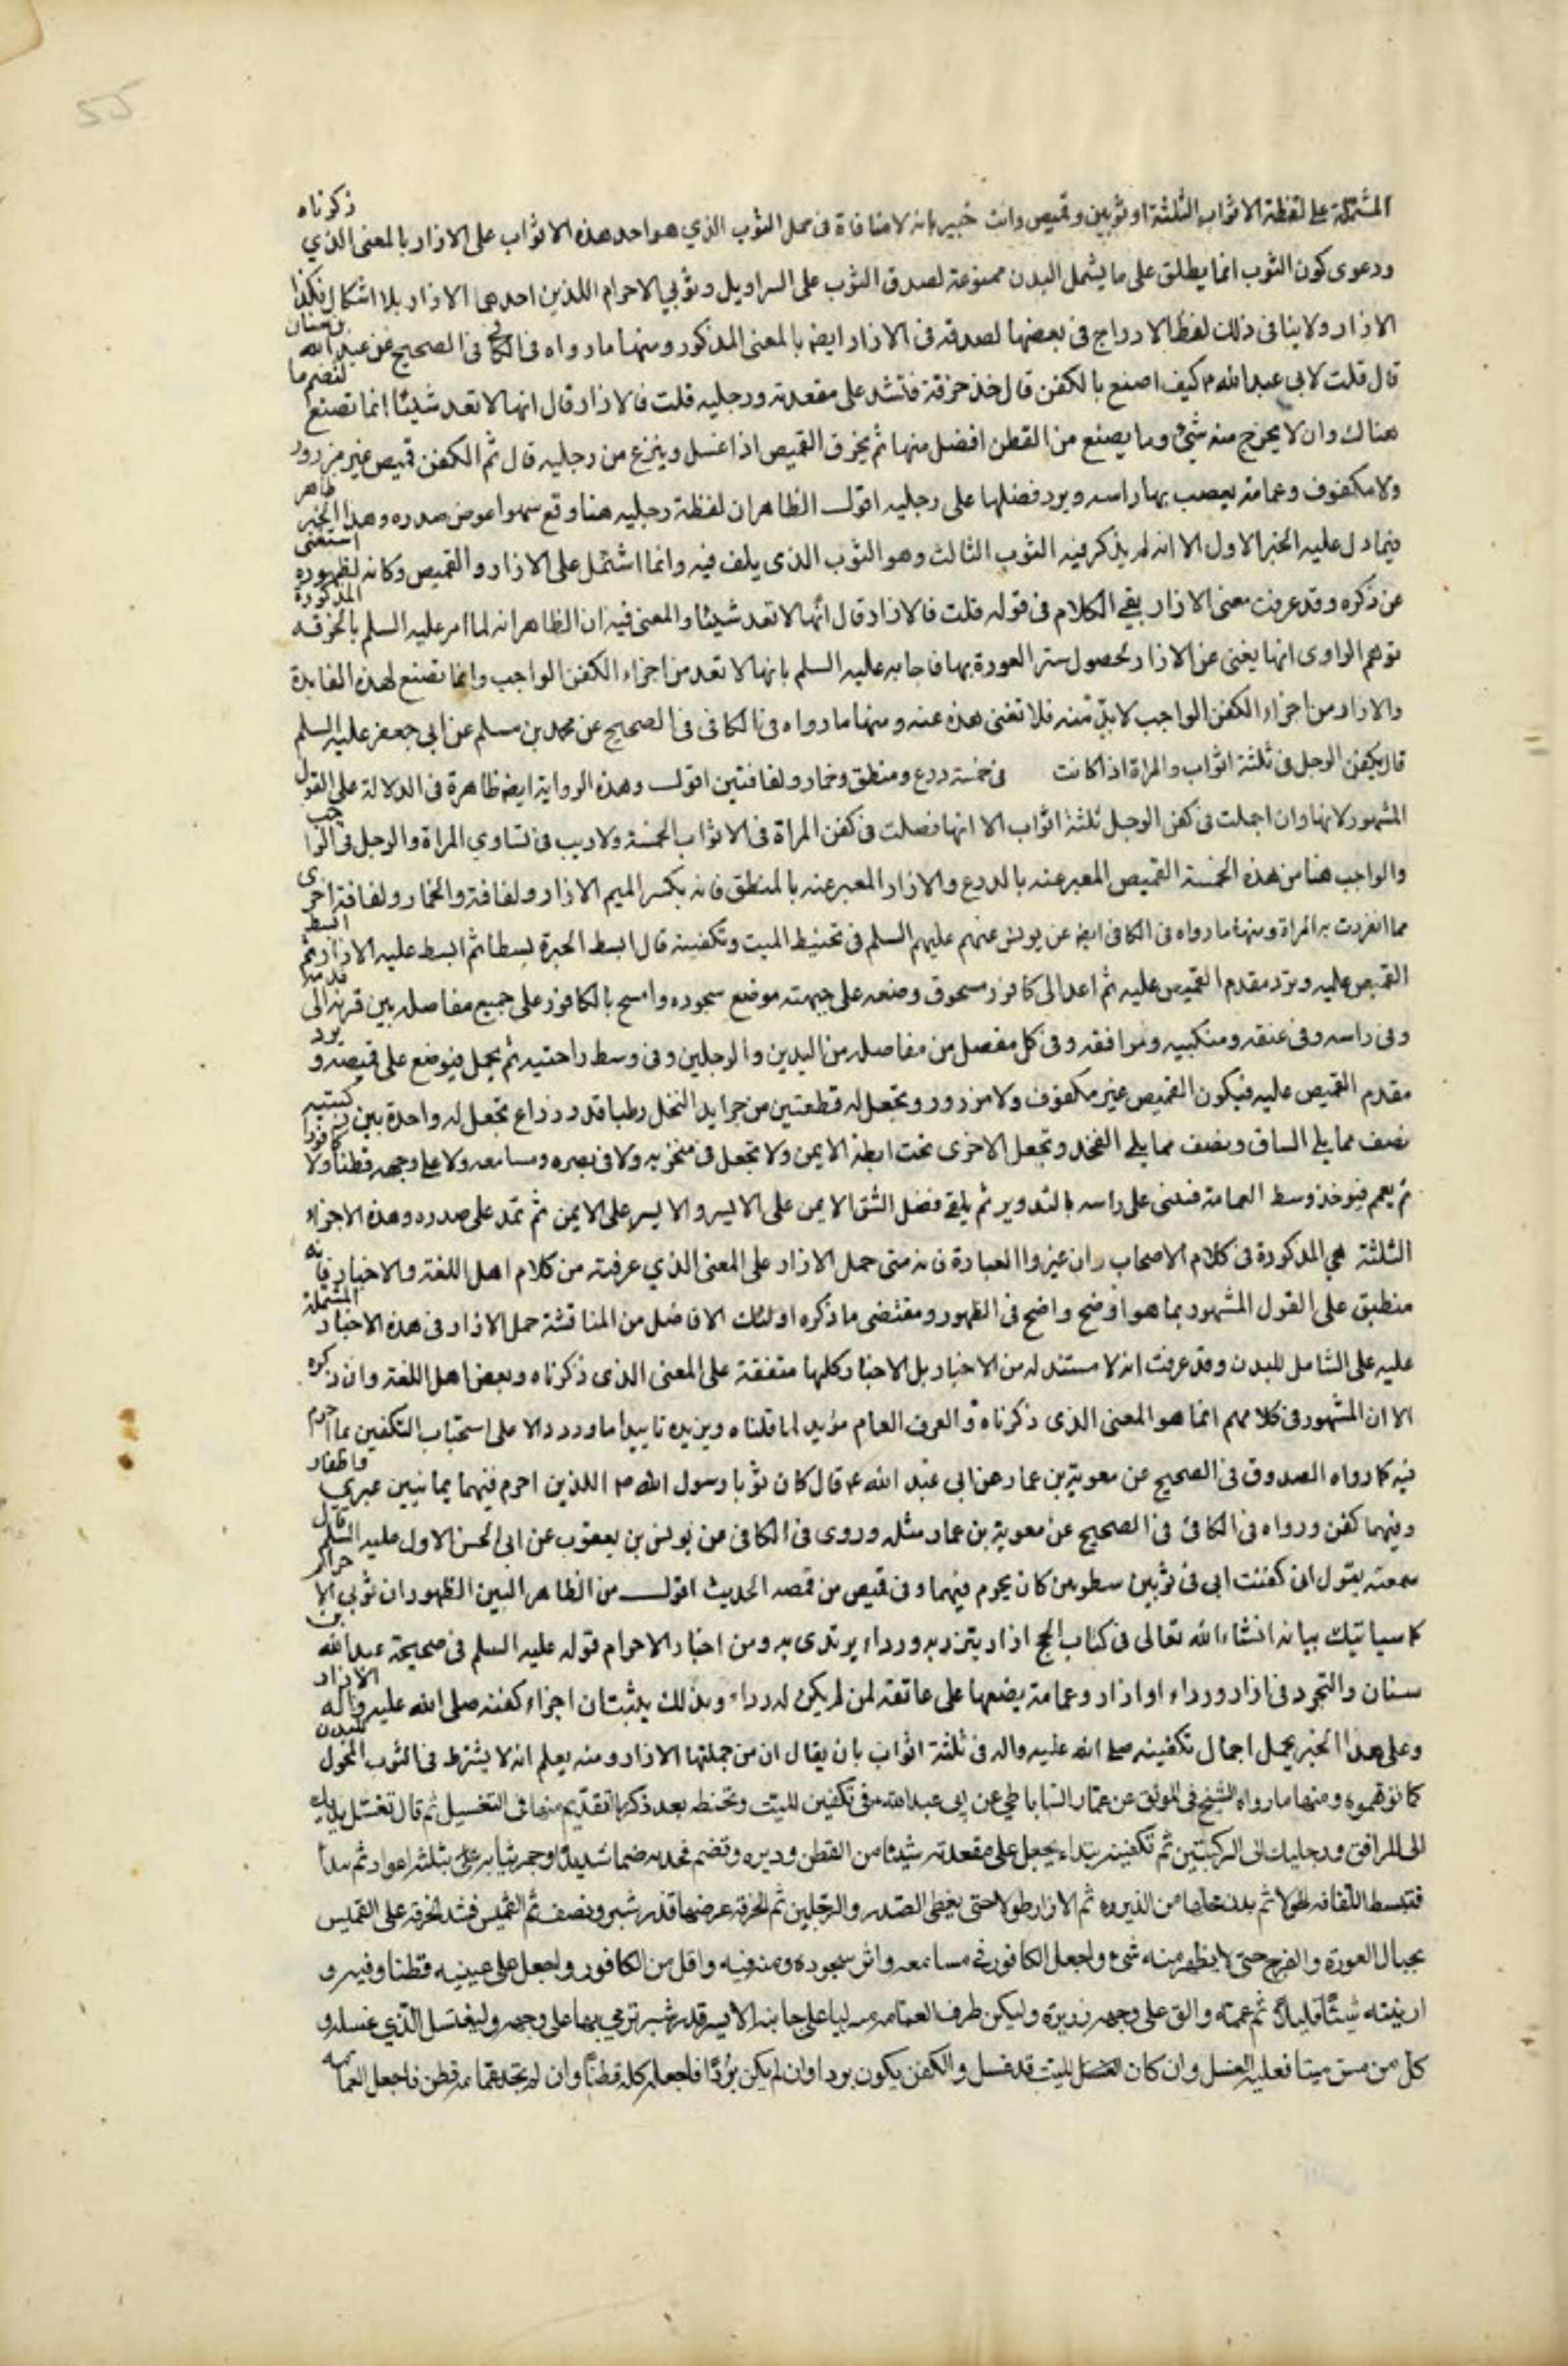 55
المشتملة على لفظة الاثواب الثلثة او ثوبين وقميص وانت خبير بانه لا منافاة فى محل الثوب الذي هو احد هذه الاثواب على الازار بالمعنى الذي ذكرناه
ودعوى كون الثوب انما يطلق على ما يشمل البدن ممنوعة لصدق الثوب على السراويل وثوبي الاحرام اللذين احدهما الازار بلا اشكال فكذا
الازار ولا ينافى ذلك لفظ الادراج فى بعضها لصدقه فى الازار ايضا بالمعنى المذكور ومنها ما رواه فى الكافى فى الصحيح عن عبد الله بن سنان
قال قلت لابي عبد الله ع كيف اصنع بالكفن قال خذ خرقة فتشد على مقعدته ورجليه قلت فالازار قال انها لا تعد شيئا انما تصنع لتضم ما
هناك وان لا يخرج منه شئ وما يصنع من القطن افضل منها ثم يخرق القميص اذا غسل وينزع من رجليه قال ثم الكفن قميص غير مزرور
ولا مكفوف وعمامة يعصب بها راسه ويرد فضلها على رجليه اقول الظاهر ان لفظة رجليه هنا وقع سهوا عوض صدره وهذا الخبر ظاهر
فيما دل عليه الخبر الاول الا انه لم يذكر فيه الثوب الثالث وهو الثوب الذى يلف فيه وانما اشتمل على الازار والقميص وكانه لظهوره استغنى
عن ذكره وقد عرفت معنى الازار بقي الكلام فى قوله قلت فالازار قال انها لا تعد شيئا والمعنى فيه ان الظاهر انه لما امر عليه السلم بالخرقه المذكورة
توهم الراوى انها يغنى عن الازار لحصول ستر العورة بها فاجابه عليه السلم بانها لا تعد من اجزاء الكفن الواجب وانما تصنع لهذه الفايدة
والازار من اجزاء الكفن الواجب لا بد منه فلا تغنى هذه عنه ومنها ما رواه فى الكافى فى الصحيح عن محمد بن مسلم عن ابي جعفر عليه السلم
قال يكفن الرجل فى ثلثة اثواب والمراة اذا كانت فى خمسة درع ومنطق وخمار ولفافتين اقول وهذه الرواية ايضا ظاهرة فى الدلالة على القول
المشهور لانها وان اجملت فى كفن الرجل ثلثة اثواب الا انها فصلت فى كفن المراة فى الاثواب الخمسة ولا ريب فى تساوي المراة والرجل فى الواجب
والواجب هنا من هذه الخمسة القميص المعبر عنه بالدرع والازار المعبر عنه بالمنطق فانه بكسر الميم الازار ولفافة والخمار ولفافة اخرى
مما انفردت به المراة ومنها ما رواه فى الكافى ايضا عن يونس عنهم عليهم السلم فى تحنيط الميت وتكفينه قال ابسط الحبرة بسطا ثم ابسط عليه الازار ثم ابسط
القميص عليه وترد مقدم القميص عليه ثم اعد الى كافور مسحوق وضعه على جبهته موضع سجوده وامسح بالكافور على جميع مفاصله من قرنه الى قدميه
وفى راسه وفى عنقه ومنكبيه ومرافقه وفى كل مفصل من مفاصله من اليدين والرجلين وفى وسط راحتيه ثم يحمل فيوضع على قميصه ويرد
مقدم القميص عليه فيكون القميص غير مكفوف ولا مزرور وتجعل له قطعتين من جرايد النخل رطبا قدر ذراع تجعل له واحدة بين ركبتيه
نصف مما يلى الساق ونصف مما يلى الفخذ وتجعل الاخرى تحت ابطه الايمن ولا تجعل فى منخريه ولا فى بصره ومسامعه ولا على وجهه قطنا ولا كافورا
ثم يعمم فيوخذ وسط العمامة فيثنى على راسه بالتدوير ثم يلقى فضل الشق الايمن على الايسر والايسر على الايمن ثم تمد على صدره وهذه الاجزاء
الثلثة هي المذكورة فى كلام الاصحاب وان غيروا العبارة فانه متى حمل الازار على المعنى الذي عرفته من كلام اهل اللغة والاخبار فانه
منطبق على القول المشهور بما هو اوضح واضح فى الظهور ومقتضى ما ذكره اولئك الافاضل من المناقشة حمل الازار فى هذه الاخبار المشتملة
عليه على الشامل للبدن وقد عرفت انه لا مستند له من الاخبار بل الاخبار كلها متفقة على المعنى الذى ذكرناه وبعض اهل اللغة وان ذكره
الا ان المشهور فى كلامهم انما هو المعنى الذى ذكرناه والعرف العام مؤيد لما قلناه ويزيده تاييدا ما ورد دالا على استحباب التكفين بما احرم
فيه كما رواه الصدوق فى الصحيح عن معوية بن عمار عن ابى عبد الله ع قال كان ثوبا رسول الله ص اللذين احرم فيهما يمانيين عبري واظفار
وفيهما كفن ورواه فى الكافى فى الصحيح عن معوية بن عمار مثله وروى فى الكافى عن يونس بن يعقوب عن ابى الحسن الاول عليه السلم قال
سمعته يقول انى كفنت ابى فى ثوبين شطويين كان يحرم فيهما وفى قميص من قمصه الحديث اقول من الظاهر البين الظهور ان ثوبي الاحرام
كما سياتيك بيانه انشاء الله تعالى فى كتاب الحج ازار يتزر به ورداء يرتدى به ومن اخبار الاحرام قوله عليه السلم فى صحيحة عبد الله بن
سنان والتجرد فى ازار ورداء او ازار وعمامة يضعها على عاتقه لمن لم يكن له رداء وبذلك يثبت ان اجزاء كفنه صلى الله عليه واله الازار
وعلى هذا الخبر يحمل اجمال تكفينه صلى الله عليه واله فى ثلثة اثواب بان يقال ان من جملتها الازار ومنه يعلم انه لا يشترط فى الثوب الشمول للبدن
كما توهموه ومنها ما رواه الشيخ فى الموثق عن عمار الساباطي عن ابي عبد الله ع فى تكفين الميت وتحنطه بعد ذكر ما تقدم منها فى التغسيل ثم قال تغسل يديك
الى المرافق ورجليك الى الركبتين ثم تكفينه تبتداء يجعل على مقعدته شيئا من القطن وذريره وتضم فخذيه ضما شديدا وجمر ثيابه بثلثة اعواد ثم تبدأ
فتبسط اللفافه طولا ثم يذر عليها من الذريره ثم الازار طولا حتى يغطى الصدر والرجلين ثم الخرقة عرضها قدر شبر ونصف ثم القميص فتشد الخرقة على القميص
بحيال العورة والفرج حتى لا يظهر منه شئ واجعل الكافور فى مسامعه واثر سجوده ومنه وفيه واقل من الكافور واجعل على عينيه قطنا وفيه و
ارنبته شيئا قليلا ثم عممه والق على وجهه ذريرة وليكن طرف العمامه متدليا على جانبه الايسر قدر شبر ترمي بها على وجهه وليغتسل الذي غسله و
كل من مس ميتا فعليه الغسل وان كان الميت قد غسل والكفن يكون بردا وان لم يكن بردا فاجعله كله قطنا وان لم تجد عمامه قطن فاجعل العمامه